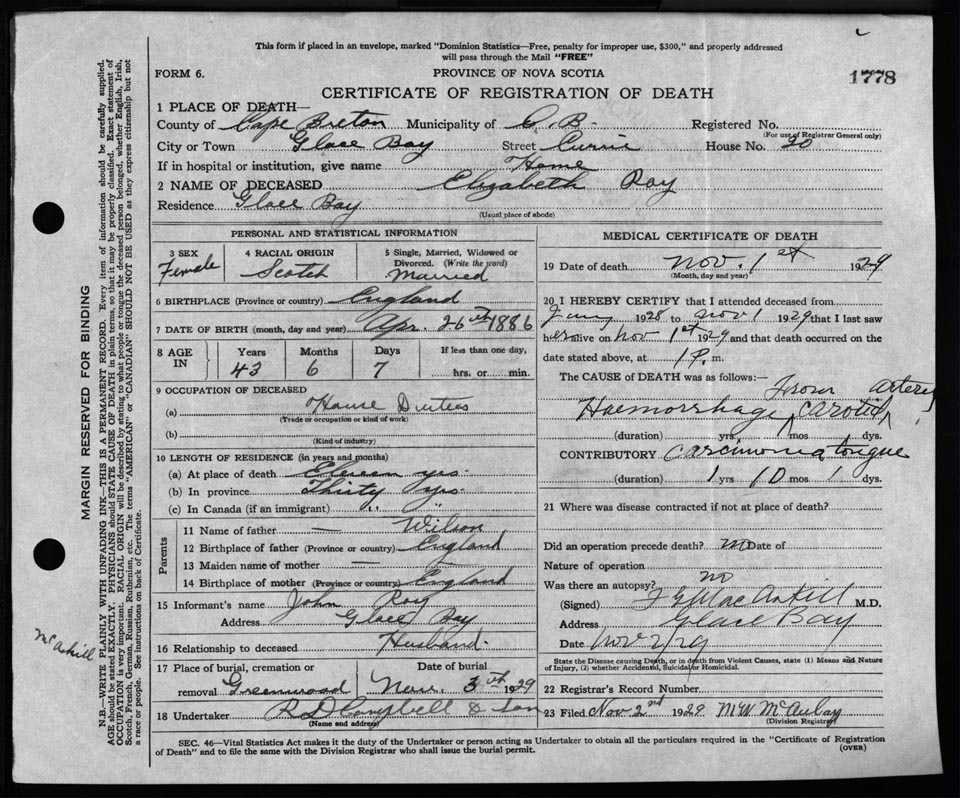 This form if placed in an envelope, marked "Dominion Statistics—Free, penalty for improper use, $300," and properly addressed
will pass through the Mail "FREE"
FORM 6. PROVINCE OF NOVA SCOTIA 1778
CERTIFICATE OF REGISTRATION OF DEATH
1 PLACE OF DEATH—
County of Cape Breton Municipality of C. B. Registered No.
(For use of Registrar General only)
City or Town Glace Bay Street Currie House No. 20
If in hospital or institution, give name Home
2 NAME OF DECEASED Elizabeth Roy
Residence Glace Bay
(Usual place of abode)
PERSONAL AND STATISTICAL INFORMATION
3 SEX 4 RACIAL ORIGIN 5 Single, Married, Widowed or
Divorced. (Write the word)
Female Scotch Married
6 BIRTHPLACE (Province or country) England
7 DATE OF BIRTH (month, day and year) Apr. 26th 1886
8 AGE IN Years Months Days If less than one day,
43 6 7 hrs. or min.
9 OCCUPATION OF DECEASED
(a) House Duties
(Trade or occupation or kind of work)
(b)
(Kind of industry)
10 LENGTH OF RESIDENCE (in years and months)
(a) At place of death Eleven yrs.
(b) In province Thirty yrs.
(c) In Canada (if an immigrant) " "
Parents
11 Name of father — Wilson
12 Birthplace of father (Province or country) England
13 Maiden name of mother —
14 Birthplace of mother (Province or country) England
15 Informant's name John Roy
Address Glace Bay
16 Relationship to deceased Husband
17 Place of burial, cremation or Date of burial
removal Greenwood Nov. 3th 1929
18 Undertaker R D Campbell & Son
(Name and address)
MEDICAL CERTIFICATE OF DEATH
19 Date of death Nov. 1st 1929
(Month, day and year)
20 I HEREBY CERTIFY that I attended deceased from
Jany 1928 to Nov 1 1929 and that I last saw
her alive on Nov 1st 1929 and that death occurred on the
date stated above, at 1 P. m.
The CAUSE of DEATH was as follows:
Haemorrhage from carotid artery
(duration) yrs. mos. dys.
CONTRIBUTORY Carcinoma tongue
(duration) 1 yrs 10 mos 1 dys.
21 Where was disease contracted if not at place of death?
Did an operation precede death? no Date of
Nature of operation
Was there an autopsy? no
(Signed) MacAskill M.D.
Address Glace Bay
Date Nov 2/29
State the Disease causing Death, or in death from Violent Causes, state (1) Means and Nature
of Injury, (2) whether Accidental, Suicidal or Homicidal.
22 Registrar's Record Number
23 Filed Nov 2nd 1929 M W McAulay
(Division Registrar)
SEC. 46—Vital Statistics Act makes it the duty of the Undertaker or person acting as Undertaker to obtain all the particulars required in the "Certificate of Registration
of Death" and to file the same with the Division Registrar who shall issue the burial permit. (OVER)
MARGIN RESERVED FOR BINDING
N.B.—WRITE PLAINLY WITH UNFADING INK—THIS IS A PERMANENT RECORD. Every item of information should be carefully supplied.
AGE should be stated EXACTLY. PHYSICIANS should STATE CAUSE OF DEATH in plain terms, so that it may be properly classified. Exact statement of
OCCUPATION is very important. RACIAL ORIGIN will be described by stating to what people or tongue the deceased person belonged, whether English, Irish,
Scotch, French, German, Russian, Ruthenian, etc. The terms "AMERICAN" or "CANADIAN" SHOULD NOT BE USED as they express citizenship but not
a race or people. See instructions on back of Certificate.
McAskill